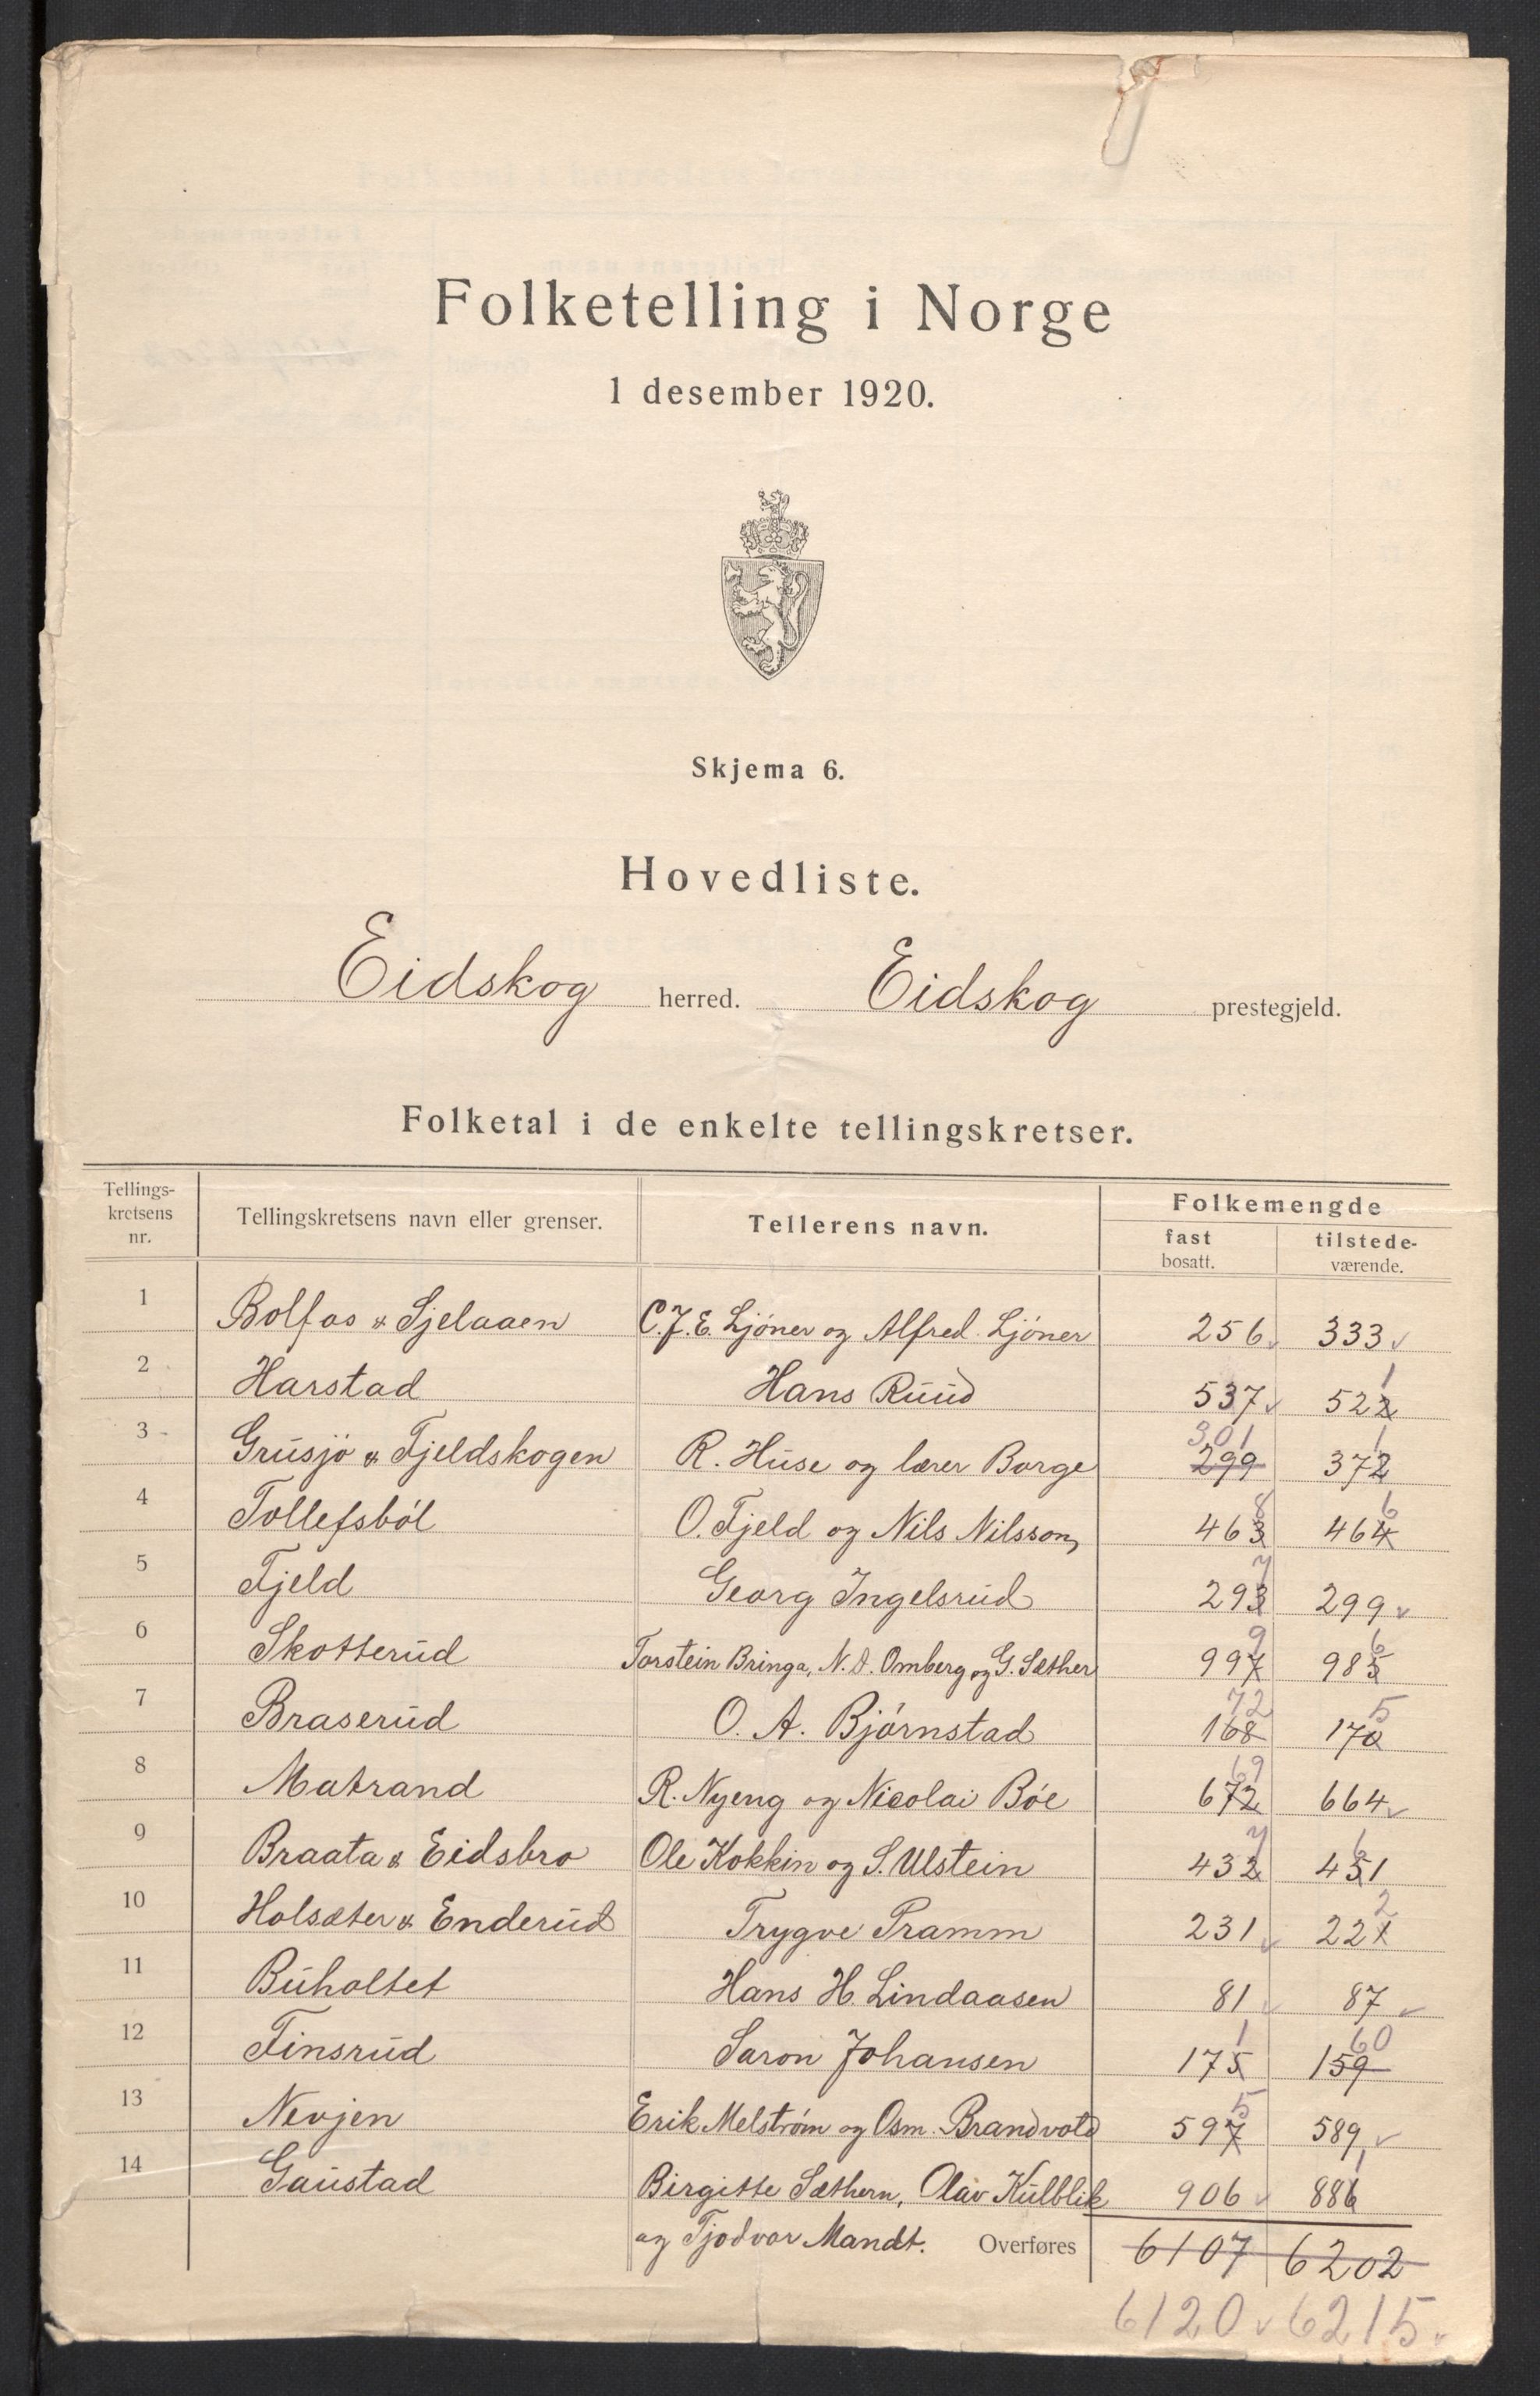 Folketelling i Norge
1 desember 1920.
Skjema 6.
Hovedliste.
Eidskog herred. Eidskog prestegjeld.
Folketal i de enkelte tellingskretser.
Tellings-kretsens nr. Tellingskretsens navn eller grenser. Tellerens navn. Folkemengde fast bosatt. tilstede-værende.
1 Bolfos & Sjelaaen C.J.E. Ljöner og Alfred Ljöner 256 333
2 Harstad Hans Ruud 537 522 1
3 Grusjö & Fjeldskogen R. Huse og lærer Borge 299 301 372 1
4 Tollefsböl O. Fjeld og Nils Nilsson 463 8 464 6
5 Fjeld Georg Ingelsrud 293 7 299
6 Skotterud Torstein Bringa, N. O. Omberg og G. Sæther 997 9 985 6
7 Braserud O. A. Björnstad 168 72 170 5
8 Matrand R. Nyeng og Nicolai Böe 672 69 664
9 Braata & Eidsbro Ole Kokkin og S. Ulstein 432 7 451 6
10 Holsæter & Enderud Trygve Pramm 231 221 2
11 Buholtet Hans H. Lindaasen 81 87
12 Finsrud Saron Johansen 175 1 159 60
13 Nevjen Erik Melström og Osm. Brandvold 597 5 589
14 Gaustad Birgitte Sæthern, Olav Kulblik 906 886 1
og Tjodvor Mandt. Overføres 6107 6202
6120 6215